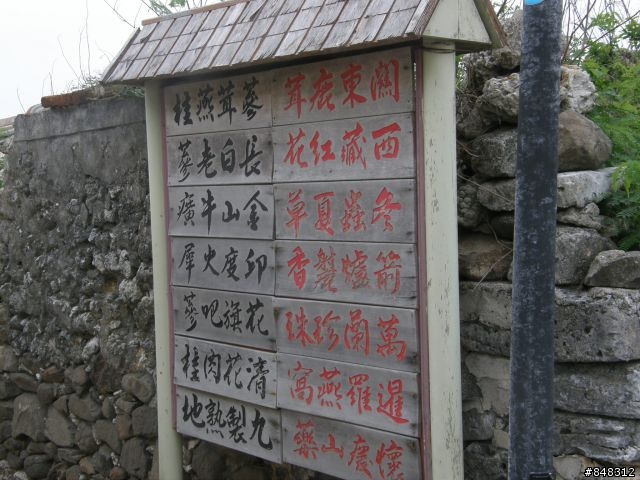 關東鹿茸
蔘茸燕桂
西藏紅花
長白老蔘
冬蟲夏草
金山牛癀
箭爐麝香
印度火犀
萬蘭珍珠
花旗吧蔘
暹羅燕窩
清花肉桂
懷慶山藥
九製熟地
#848312